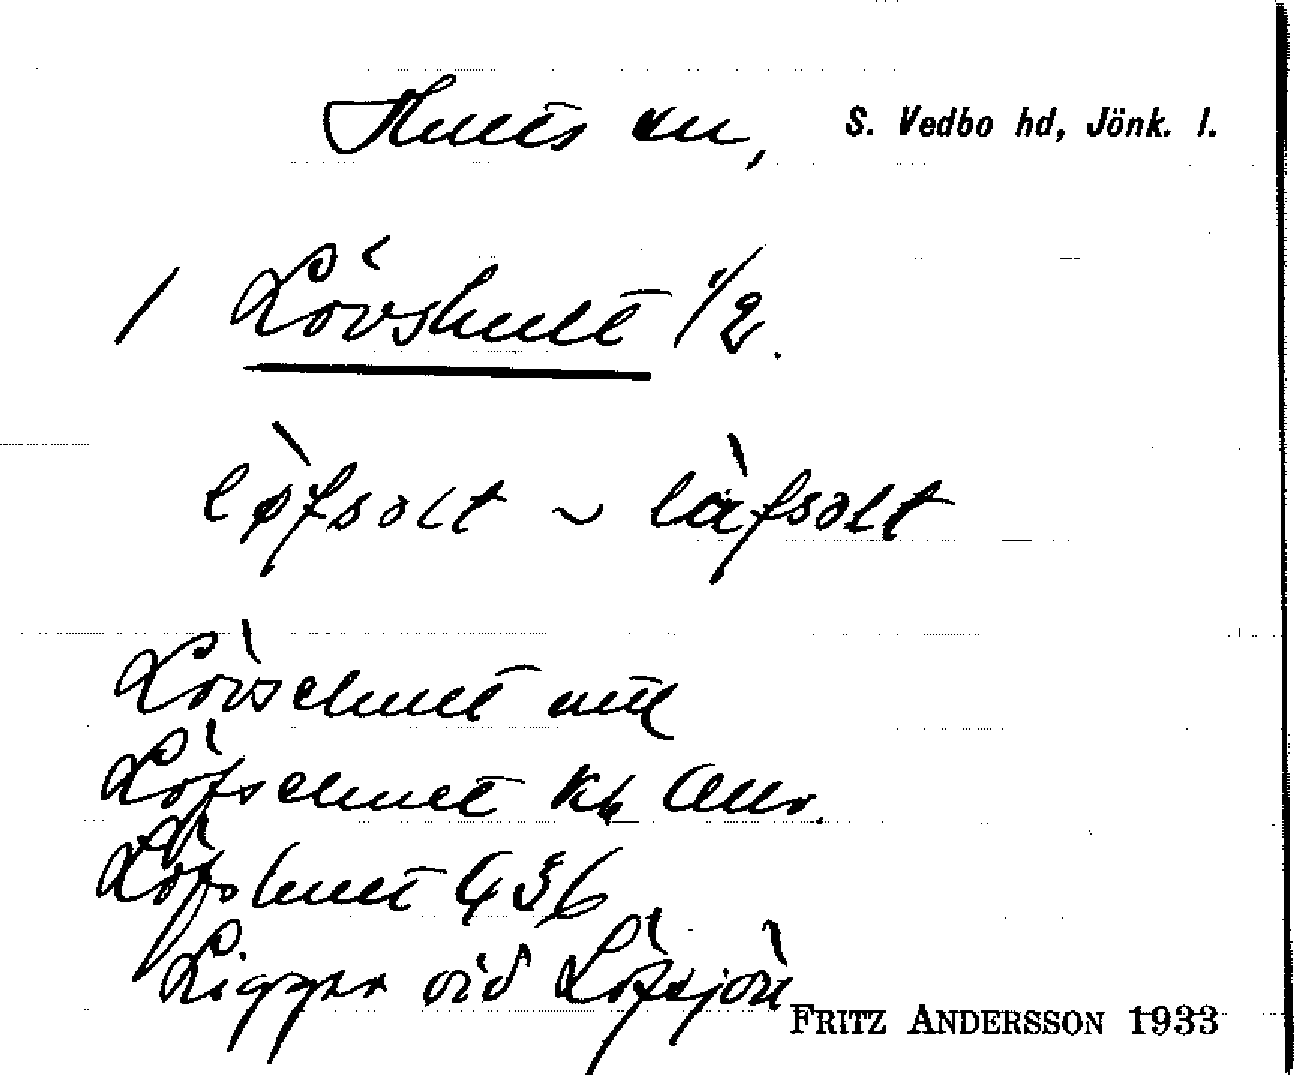 Hults sn, S. Vedbo hd, Jönk. l.
1 Lövshult 1/2.
løfsolt ~ låfsolt
Lövsehult
Löfsehult kb
Löfshult G 36
Ligger vid Löfsjön
FRITZ ANDERSSON 1933